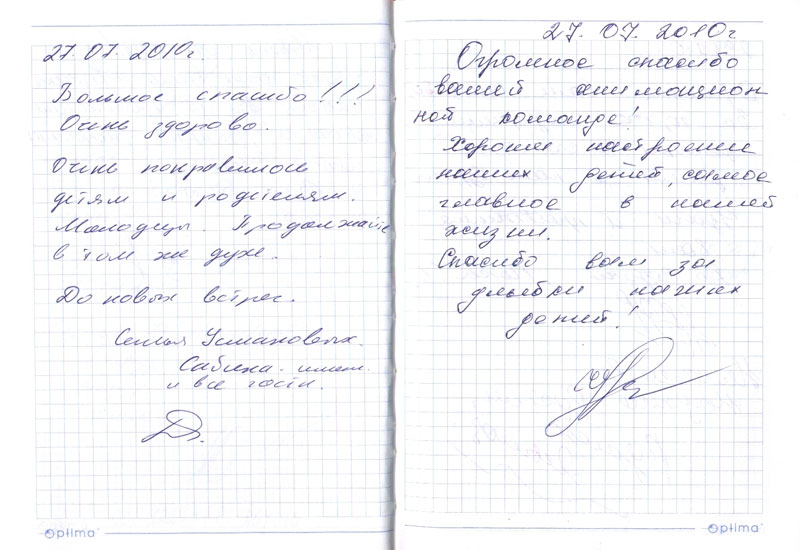 27.07.2010г.
Большое спасибо!!!
Очень здорово.
Очень понравилось
детям и родителям.
Молодцы. Продолжайте
в том же духе.
До новых встреч.
Семья Усмановых.
Сабина
и все гости.
Optima
27.07.2010г
Огромное спасибо
вашей анимацион
ной команде!
Хорошее настроение
наших детей, самое
главное в нашей
жизни.
Спасибо вам за
улыбки наших
детей!
Optima